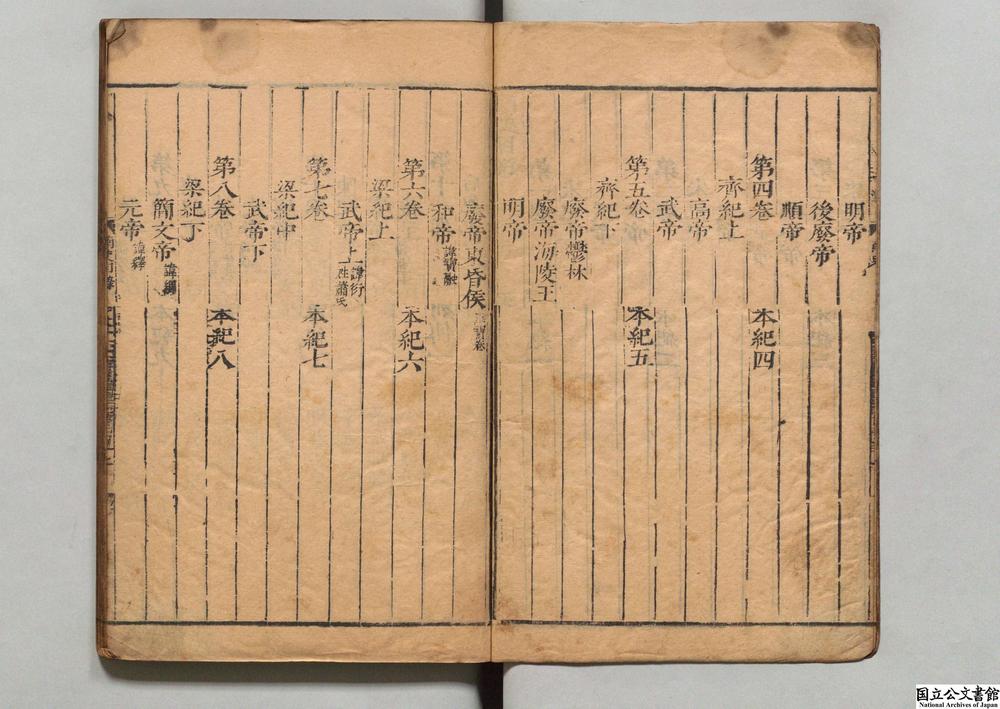 明帝
後廢帝
順帝
第四卷 本紀四
齊紀上
高帝
武帝
第五卷 本紀五
齊紀下
廢帝鬱林
廢帝海陵王
明帝
廢帝東昏侯
和帝 諱寶融
第六卷 本紀六
梁紀上
武帝上 諱衍 姓蕭氏
第七卷 本紀七
梁紀中
武帝下
第八卷 本紀八
梁紀下
簡文帝 諱綱
元帝 諱繹
国立公文書館
National Archives of Japan